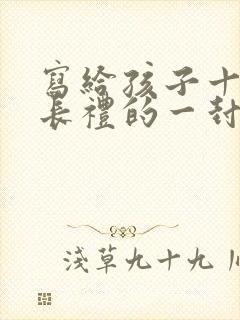 寫給孩子十
長禮的一封
淺草九十九